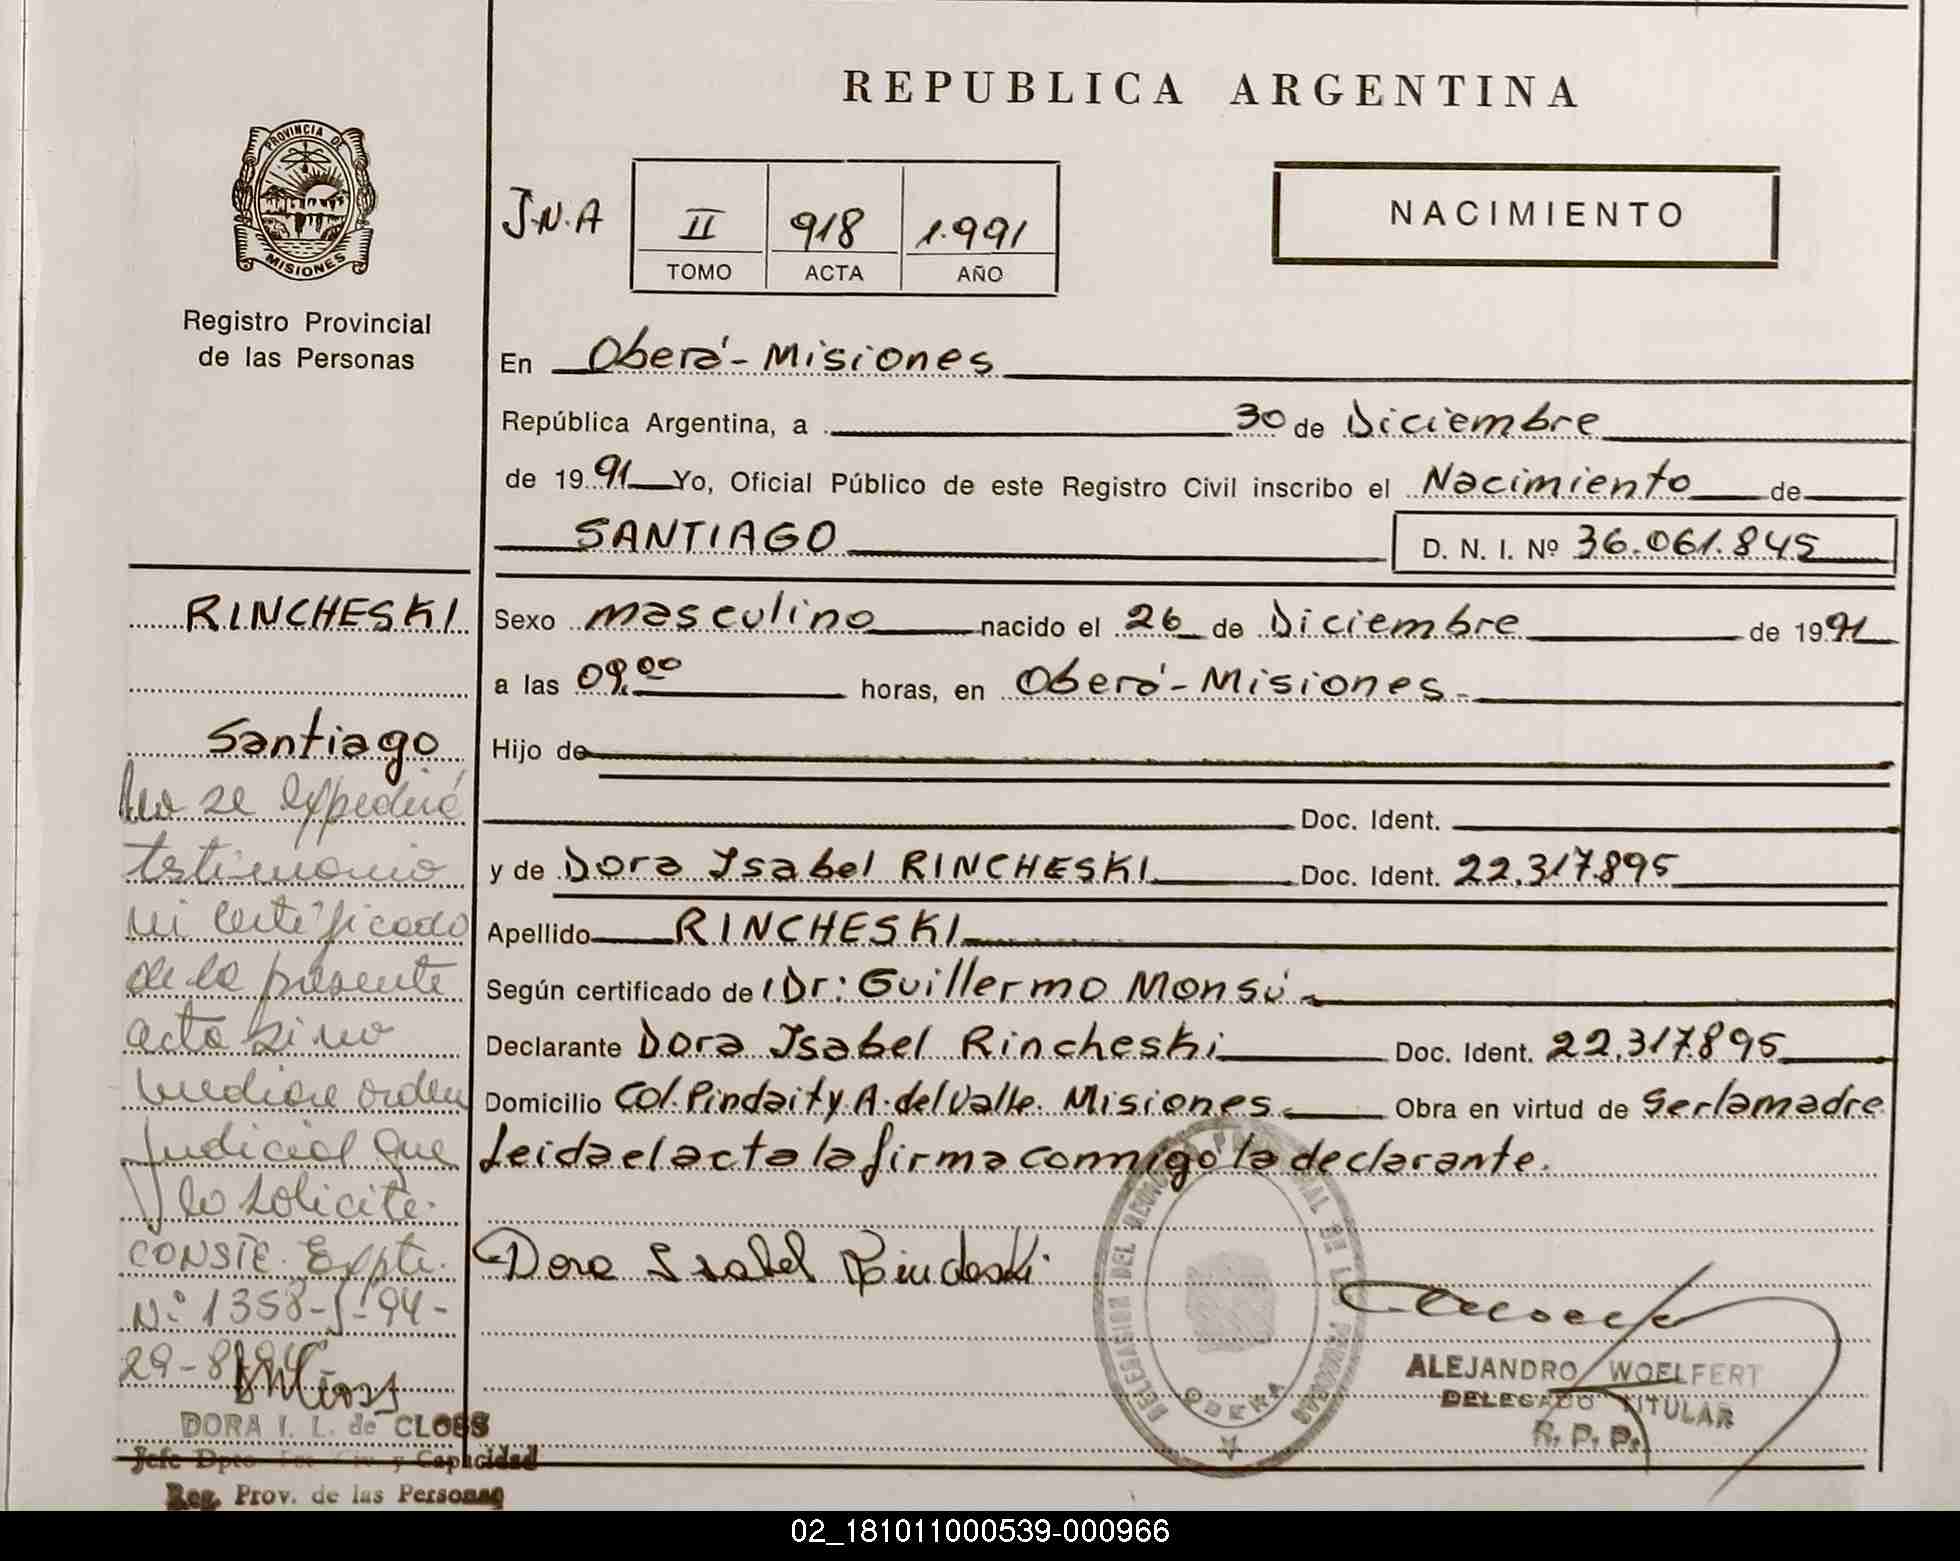 REPUBLICA ARGENTINA
PROVINCIA DE
MISIONES
Registro Provincial
de las Personas
J.N.A
II 918 1.991
TOMO ACTA AÑO
NACIMIENTO
En Oberá-Misiones
República Argentina, a 30 de Diciembre
de 1991 Yo, Oficial Público de este Registro Civil inscribo el Nacimiento de
SANTIAGO D. N. I. Nº 36.061.845
Sexo masculino nacido el 26 de Diciembre de 1991
a las 09,00 horas, en Oberá-Misiones.
Hijo de
Doc. Ident.
y de Dora Isabel RINCHESKI Doc. Ident. 22.317.895
Apellido RINCHESKI
Según certificado de Dr: Guillermo Monsú
Declarante Dora Isabel Rincheski Doc. Ident. 22.317.895
Domicilio Col. Pindaity. A. del Valle. Misiones Obra en virtud de Ser la madre
Leida el acta la firma conmigo la declarante.
Dora Isabel Rincheski
ALEJANDRO WOELFERT
DELEGADO TITULAR
R. P. P.
OBERA
RINCHESKI
Santiago
No se expedirá
testimonio
ni certificado
de la presente
acta si no
mediare orden
Judicial que
lo solicite.
CONSTE. Expte.
Nº 1358-J-94-
29-8-94
DORA I. L. de CLOSS
Jefe Dpto. y Capacidad
Reg. Prov. de las Personas
02_181011000539-000966